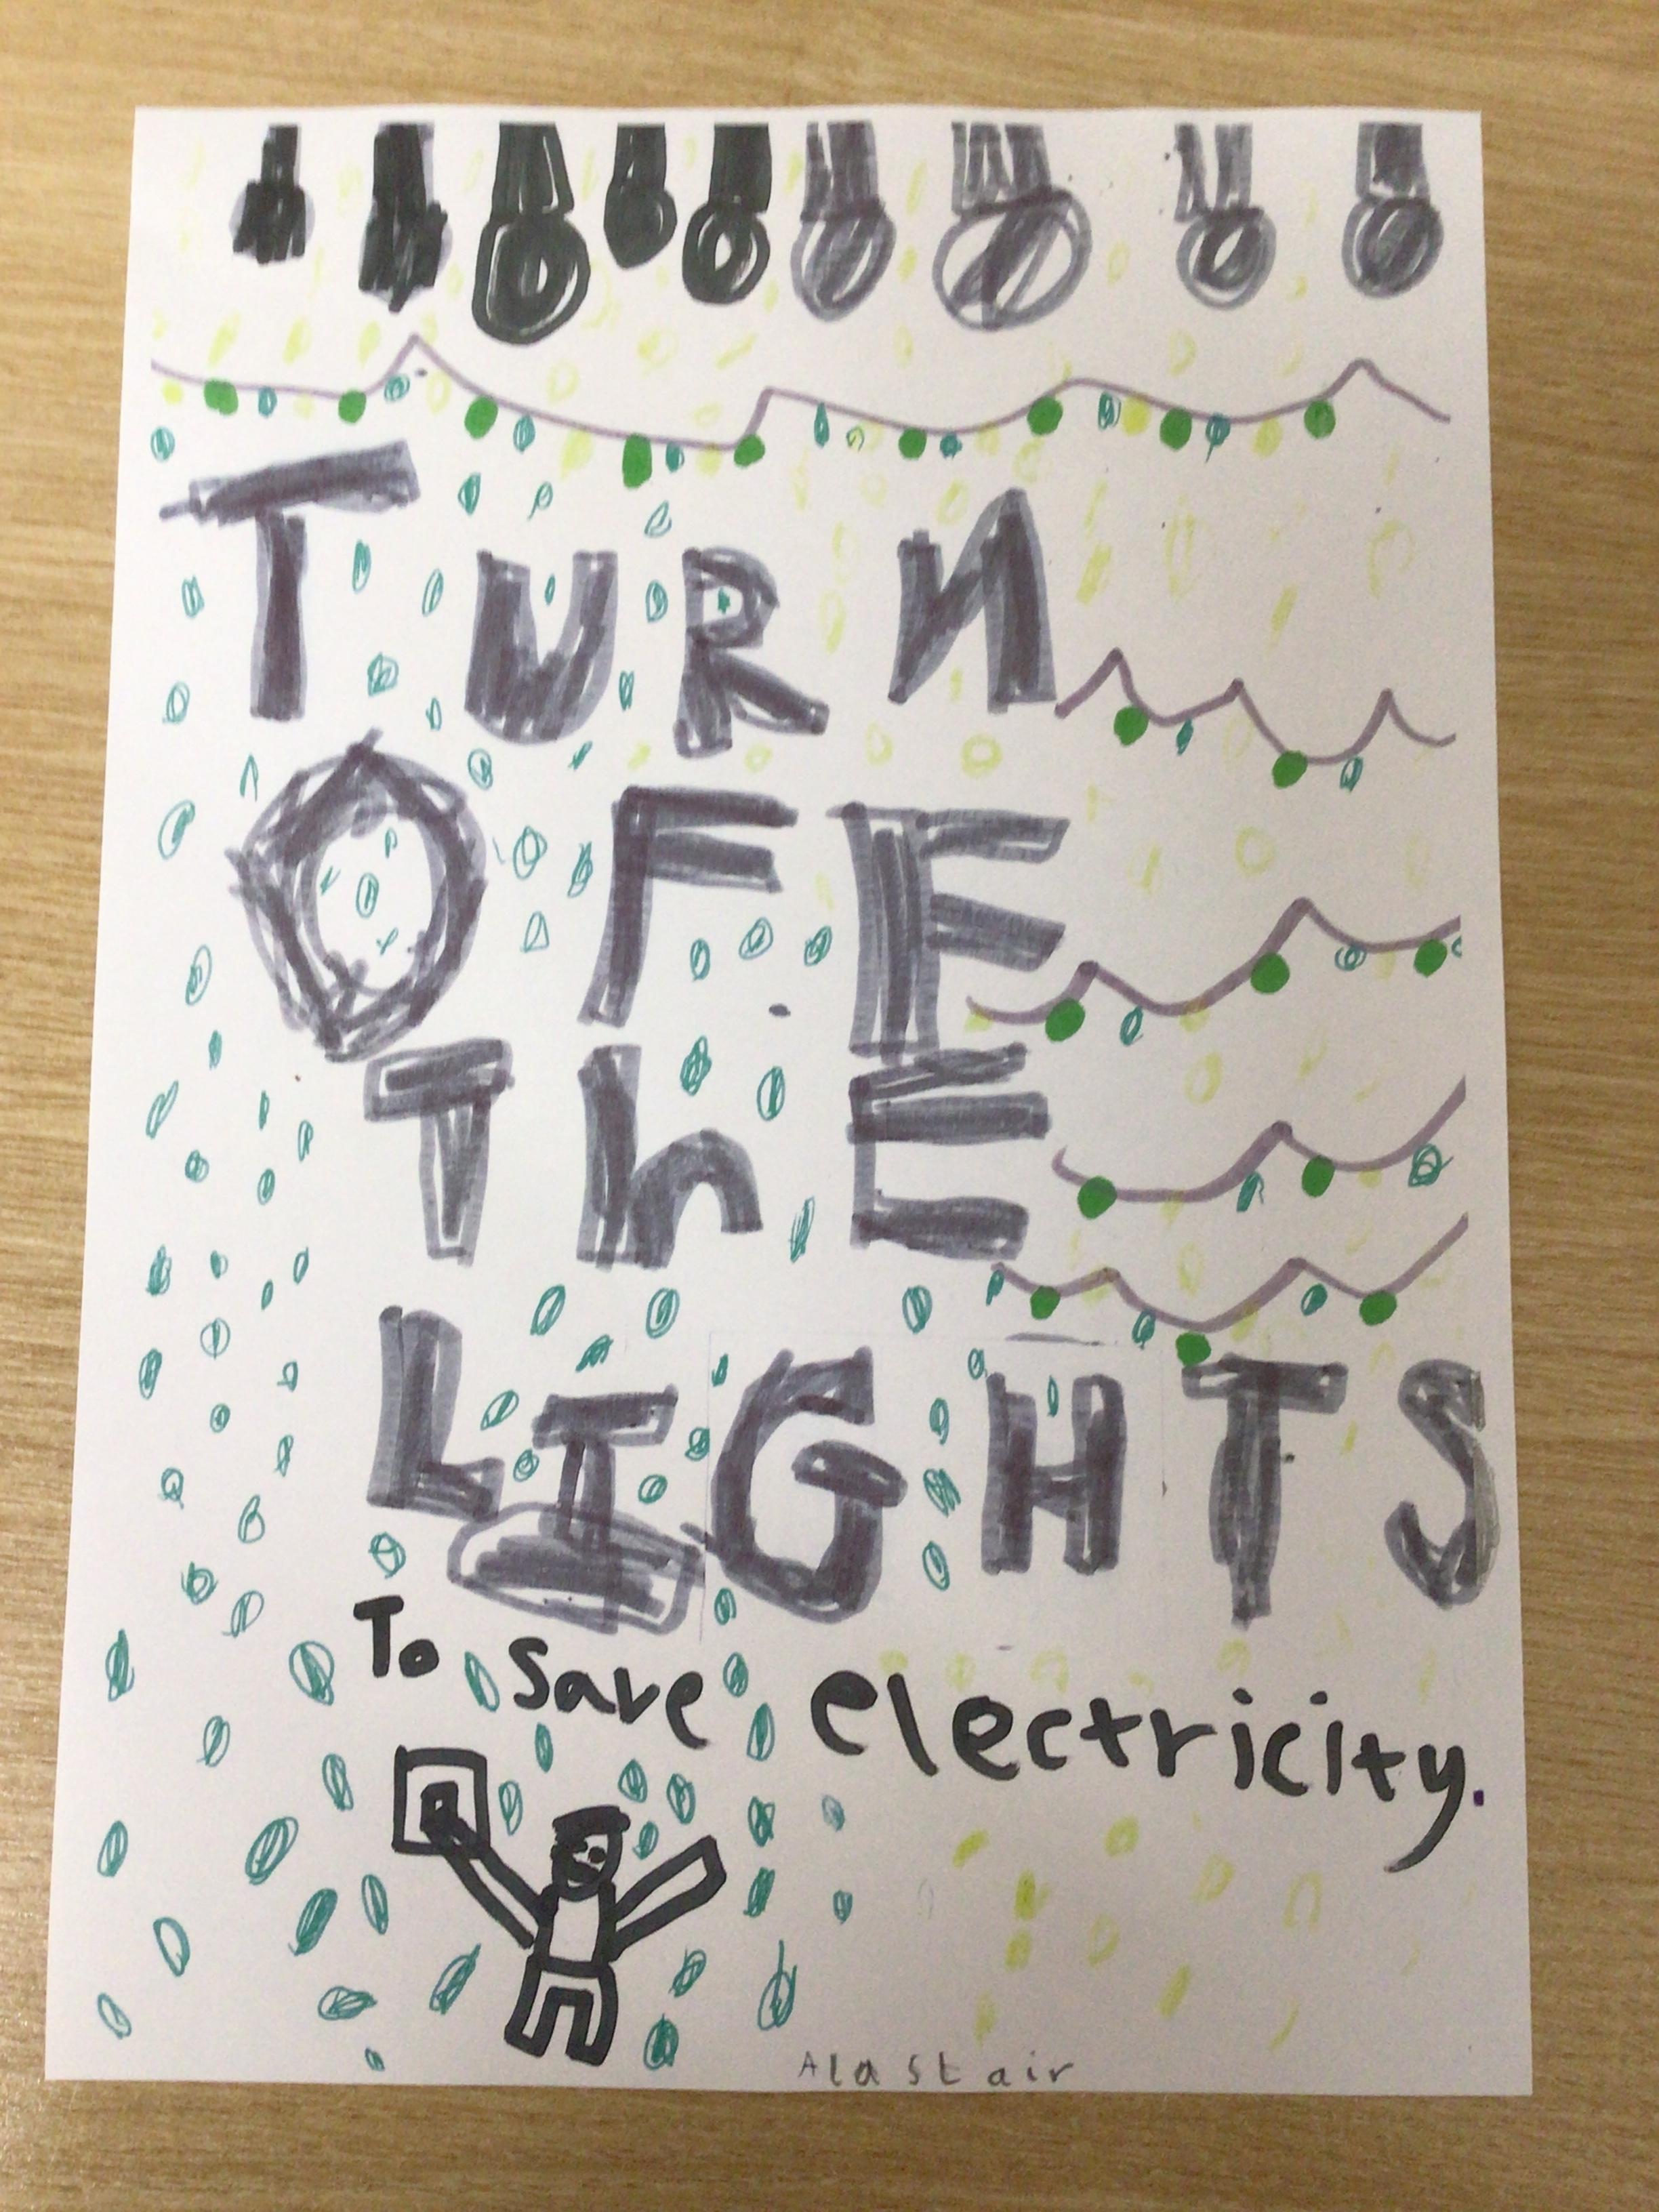 TURN
OFF
ThE
LIGHTS
To save electricity.
Alastair